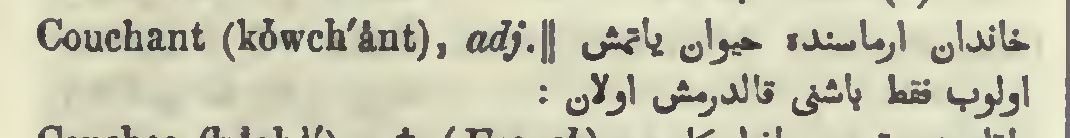 Couchant (kŏwch′ånt), adj.‖ خاندان ارماسنده حیوان یاتمش
اولوب فقط باشنی قالدرمش اولان :